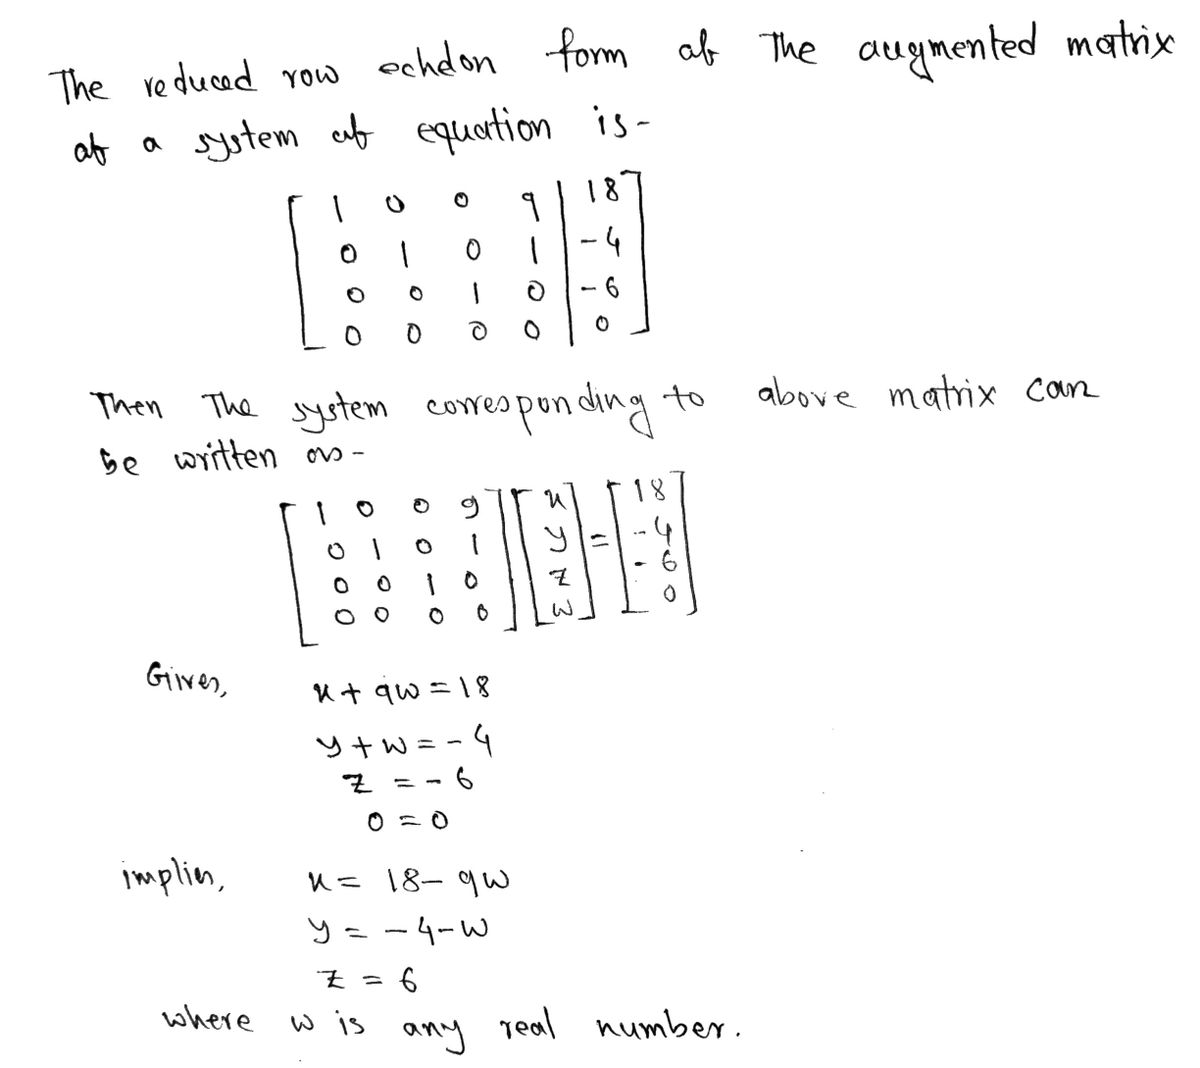 The reduced row echelon form of The augmented matrix
of a system of equation is-
[ 1 0 0 9 | 18 ]
0 1 0 1 | -4
0 0 1 0 | -6
0 0 0 0 | 0
Then The system corresponding to above matrix can
be written as -
[ 1 0 0 9 ] [ x ] = [ 18 ]
0 1 0 1 y -4
0 0 1 0 z -6
0 0 0 0 w 0
Gives, x + 9w = 18
y + w = - 4
z = - 6
0 = 0
implies, x = 18 - 9w
y = - 4 - w
z = 6
where w is any real number.